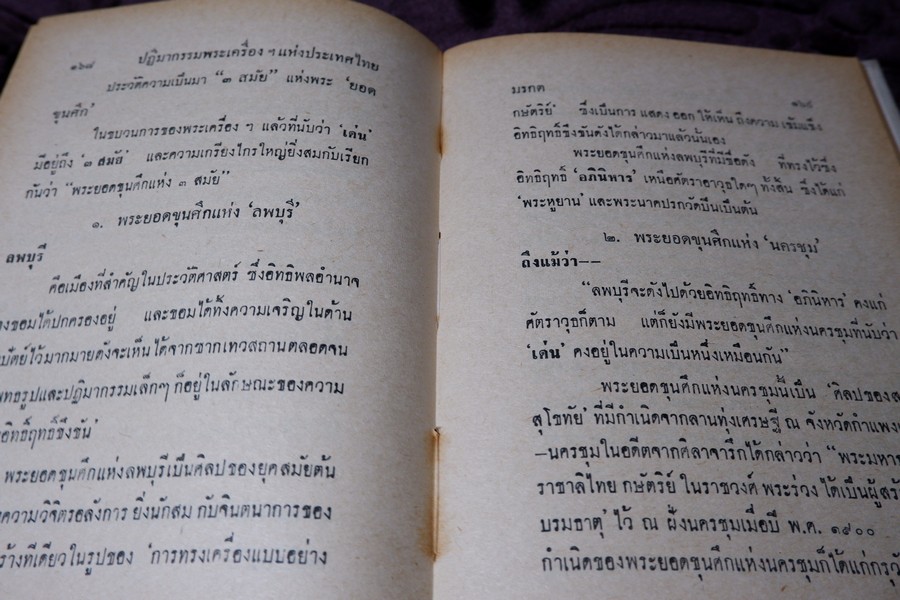 ๑๖๘ ปฏิมากรรมพระเครื่อง ฯ แห่งประเทศไทย
ประวัติความเป็นมา “๓ สมัย” แห่งพระ ‘ยอด
ขุนศึก’
ในขบวนการของพระเครื่อง ฯ แล้วที่นับว่า ‘เด่น’
มีอยู่ถึง ‘๓ สมัย’ และความเกรียงไกรใหญ่ยิ่งสมกับเรียก
กันว่า “พระยอดขุนศึกแห่ง ๓ สมัย”
๑. พระยอดขุนศึกแห่ง ‘ลพบุรี’
ลพบุรี
คือเมืองที่สำคัญในประวัติศาสตร์ ซึ่งอิทธิพลอำนาจ
ของขอมได้ปกครองอยู่ และขอมได้ทิ้งความเจริญในด้าน
ปัตย์ไว้มากมายดังจะเห็นได้จากซากเทวสถานตลอดจน
พุทธรูปและปฏิมากรรมเล็กๆ ก็อยู่ในลักษณะของความ
อิทธิฤทธิ์ขึงขัน’
พระยอดขุนศึกแห่งลพบุรีเป็นศิลปของยุคสมัยต้น
ความวิจิตรอลังการ ยิ่งนักสม กับจินตนาการของ
ร้างทีเดียวในรูปของ ‘การทรงเครื่องแบบอย่าง
มรกต ๑๖๙
กษัตริย์’ ซึ่งเป็นการ แสดง ออก ให้เห็น ถึงความ เข้มแข็ง
อิทธิฤทธิ์ขึงขันดังได้กล่าวมาแล้วนั้นเอง
พระยอดขุนศึกแห่งลพบุรีที่มีชื่อดัง ที่ทรงไว้ซึ่ง
อิทธิฤทธิ์ ‘อภินิหาร’ เหนือศัตราอาวุธใดๆ ทั้งสิ้น ซึ่งได้แก่
‘พระหูยาน’ และพระนาคปรกวัดปืนเป็นต้น
๒. พระยอดขุนศึกแห่ง ‘นครชุม’
ถึงแม้ว่า--
“ลพบุรีจะดังไปด้วยอิทธิฤทธิ์ทาง ‘อภินิหาร’ คงแก่
ศัตราวุธก็ตาม แต่ก็ยังมีพระยอดขุนศึกแห่งนครชุมที่นับว่า
‘เด่น’ คงอยู่ในความเป็นหนึ่งเหมือนกัน”
พระยอดขุนศึกแห่งนครชุมนี้เป็น ‘ศิลปของส
สุโขทัย’ ที่มีกำเนิดจากลานทุ่งเศรษฐี ณ จังหวัดกำแพง
–นครชุมในอดีตจากศิลาจารึกได้กล่าวว่า “พระมหา
ราชาลิไทย กษัตริย์ ในราชวงศ์ พระร่วง ได้เป็นผู้สร้
บรมธาตุ’ ไว้ ณ ฝั่งนครชุมเมื่อปี พ.ศ. ๑๙๐๐
กำเนิดของพระยอดขุนศึกแห่งนครชุมก็ได้แก่กรุวั